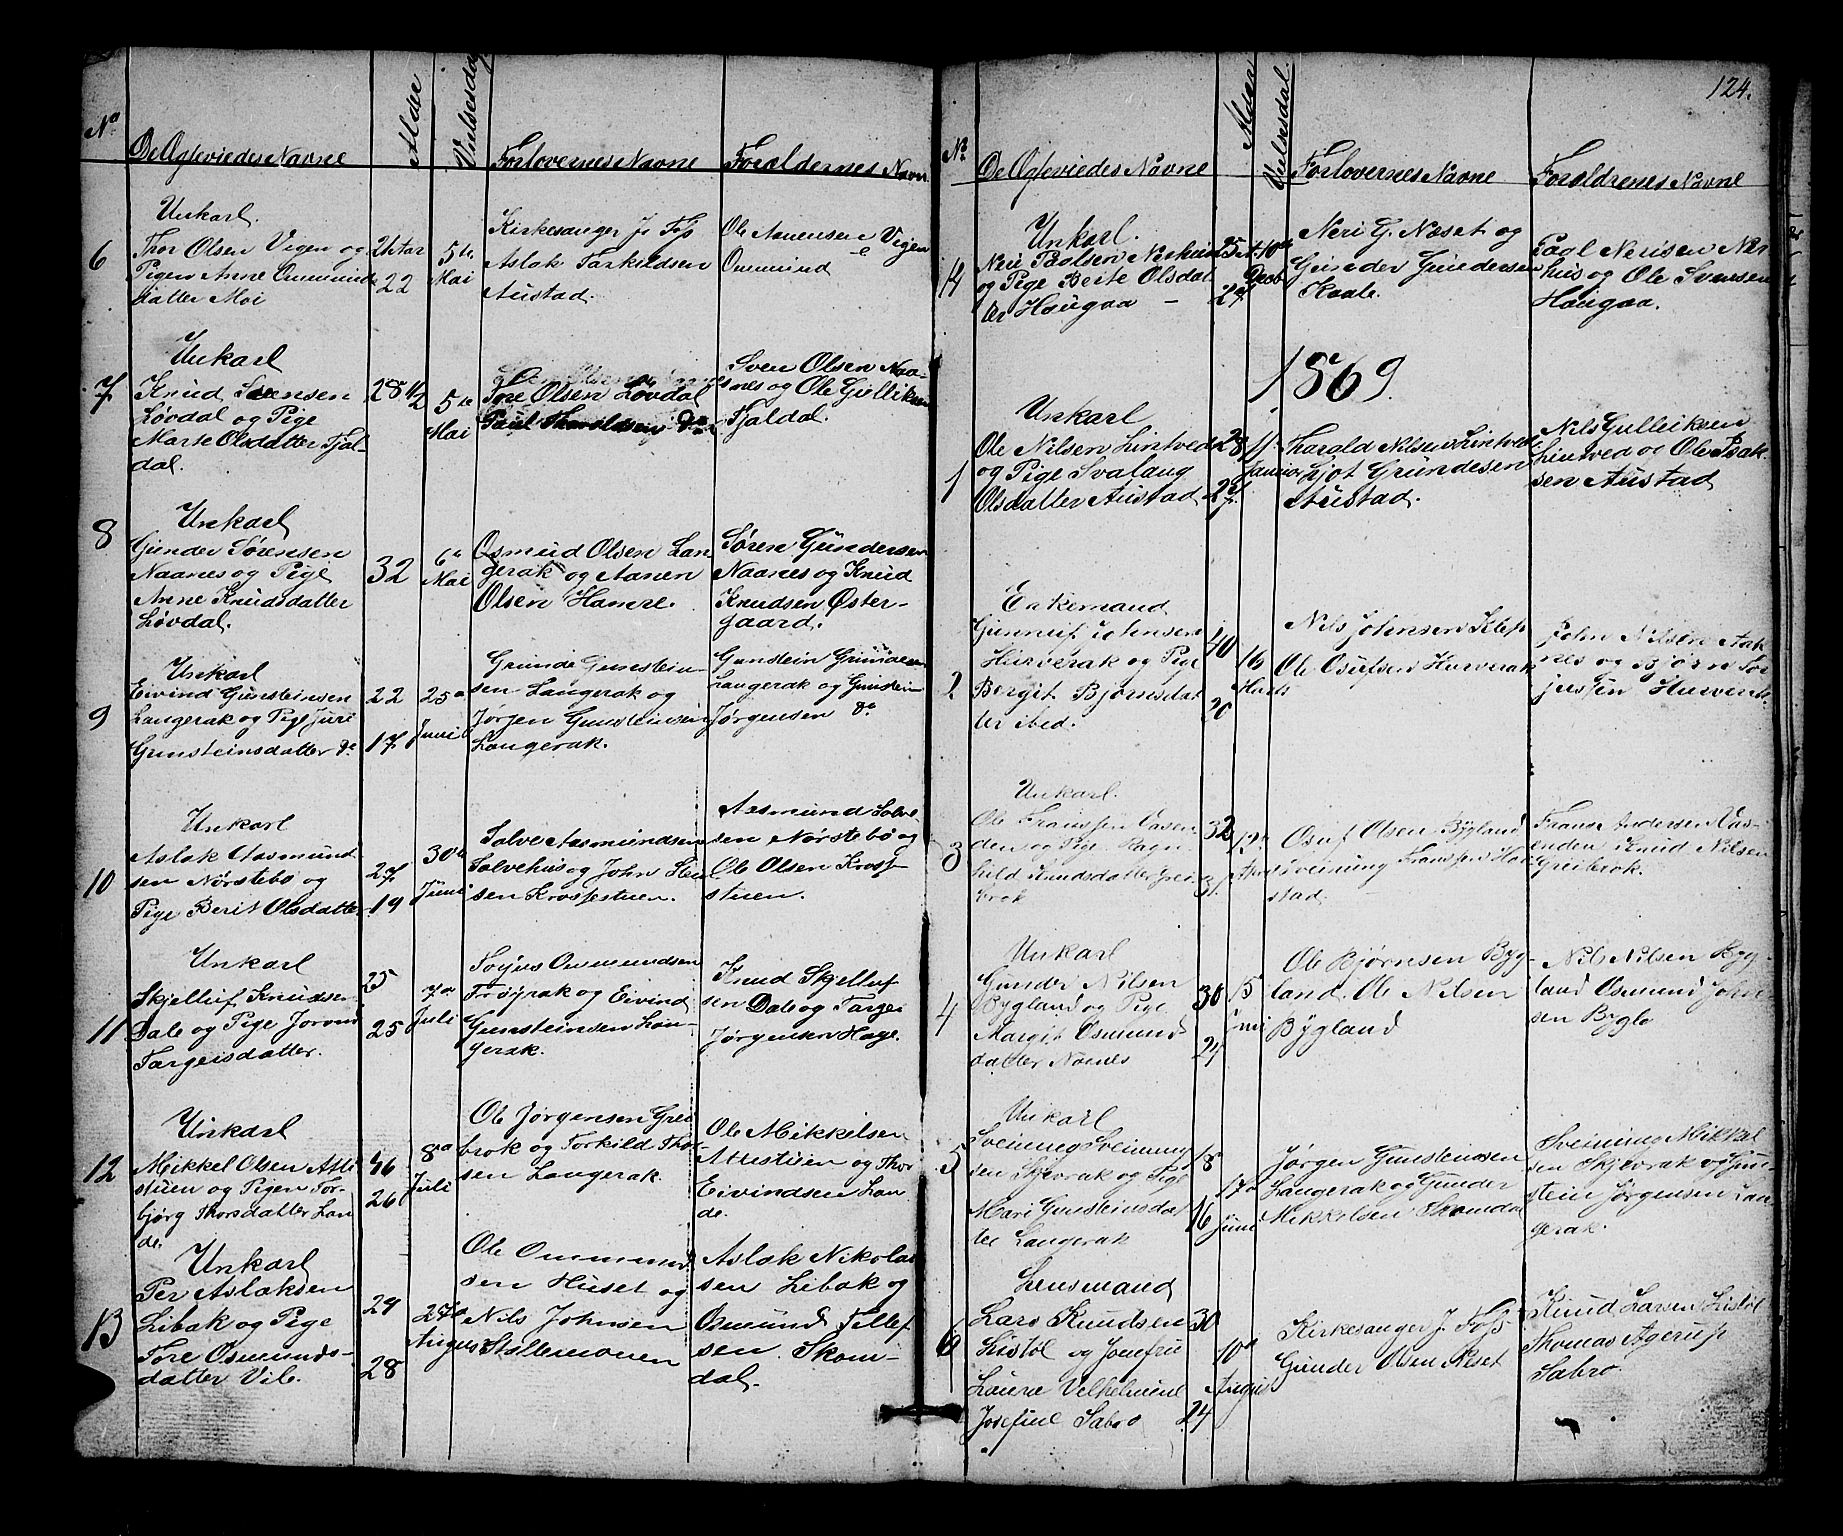 124.
No
De Ægteviedes Navne
Alder
Vielsesdag
Forlovernes Navne
Foraldernes Navn
6
Unkarl.
Thor Olsen Vigen og
Pigen Anne Ommunds
datter Moi
22
5te
Mai
Kirkesanger J. Foss
Aslak Tarkildsen
Austad.
Ole Aanensen Vigen
Ommund
7
Unkarl
Knud Sørensen
Løvdal og Pige
Marte Olsdatter Fjal-
dal.
28 1/2
5te
Mai
Tore Olsen Løvdal
Paul Tharaldsen do
Sven Olsen Naa-
nes og Ole Gulliksen
Fjaldal.
8
Unkarl
Gunder Sørensen
Naanes og Pige
Anne Knudsdatter
Løvdal.
32
6te
Mai
Osmud Olsen Lan
gerak og Aanen
Olsen Hamre.
Søren Gundersen
Naanes og Knud
Knudsen Øster-
gaard.
9
Unkarl
Eivind Gunsteinsen
Langerak og Pige Juri
Gunsteinsdatter do
22
17
25de
Juni
Grunde Gunstein-
sen Langerak og
Jørgen Gunsteinsen
Langerak.
Gunstein Grundesen
Langerak og Gunstein
Jørgensen do
10
Unkarl
Aslak Aasmund
sen Nørstebø og
Pige Berit Olsdatter
27
19
30te
Juni
Salve Aasmundsen
Salvehus og John
sen Krosfestuen.
Aasmund Salve
sen Nørstebø og
Ole Olsen Krosf
stuen.
11
Unkarl
Skjelluf Knudsen
Dale og Pige Jorand
Targeisdatter.
25
25
7de
Juli
Ommundsen
Frøyrak og Eivind
Gunsteinsen Lan-
gerak.
Knud Skjelluf
sen Dale og Targe
Jørgensen Hage.
12
Unkarl
Mikkel Olsen Atte
stuen og Pigen Tor-
bjørg Thorsdatter Lan
de.
26
8de
Juli
Ole Jørgensen Grei
brok og Torkild Thor-
sen Langerak.
Ole Mikkelsen
Attestuen og Thor
Eivindsen Lan-
de.
13
Unkarl
Per Aslaksen
Libak og Pige
Tore Osmunds-
datter Vik.
29
28
27de
August
Ole Ommund
sen Huset og
Nils Johnsen
Stallemouen
Aslak Nikolai
sen Libak og
Osmund Tellef
sen Skom-
dal.
No
De Ægteviedes Navne
Alder
Vielsesdal.
Forlovernes Navne
Foraldrenes Navne
14
Unkarl.
og Pige Berte Olsdat
ter Haugaa
25
Neri G. Næset og
Gunder Gundersen
Kaale.
Paal Nerisen Ner
hus og Ole Svensen
Haugaa.
1869.
1
Unkarl
Ole Nilsen Lintved
og Pige Svalaug
Olsdatter Austad
28
Januar
Harald Nilsen Lintved
Ljot Grundesen
Austad.
Nils Gulliksen
Lintved og Ole Isak
sen Austad
2
Enkemand
Gunnuf Johnsen
Hurverak og Pige
Bergit Bjørnsdat
ter ibed.
40
20
16
Marts
Nils Johnsen Klep
Ole Osufsen Hurverak
John Nilsen Aak
nes og Bjørn Tor
jussen
3
Unkarl.
Ole Franssen Vasen
den og Pige Ragn
hild Knudsdatter Grei
brok
32
31
Osuf Olsen Bygland
Sveinung Franssen
stad.
Frans Andersen Vas-
enden Knud Nilsen
Greibrok.
4
Unkarl
Gunder Nilsen
Bygland og Pige
Margit Osmund
datter Nomes
30
24
15
Juni
Ole Bjørnsen Byg-
land. Ole Nilsen
Bygland
Nils Nilsen Byg-
land Osmund John
sen Bygla
5
Unkarl
Sveinung Sveinung
sen Skjevrak og Pige
Mari Gunsteinsdat
ter Langerak
18
16
17de
Juni
Jørgen Gunsteinsen
Langerak og Gunder
Mikkelsen Skomdal
Sveinung Mikkel
sen Skjevrak og Gun
stein Jørgensen Lan
gerak.
6
Lensmand
Lars Knudsen
Listøl og Jomfru
Laura Velhelmine
Josefine Sabro
30
24
10de
August
Kirkesanger J. Foss
Gunder Olsen Reset
Knud Larsen Listøl
Thomas Agerup
Sabro.